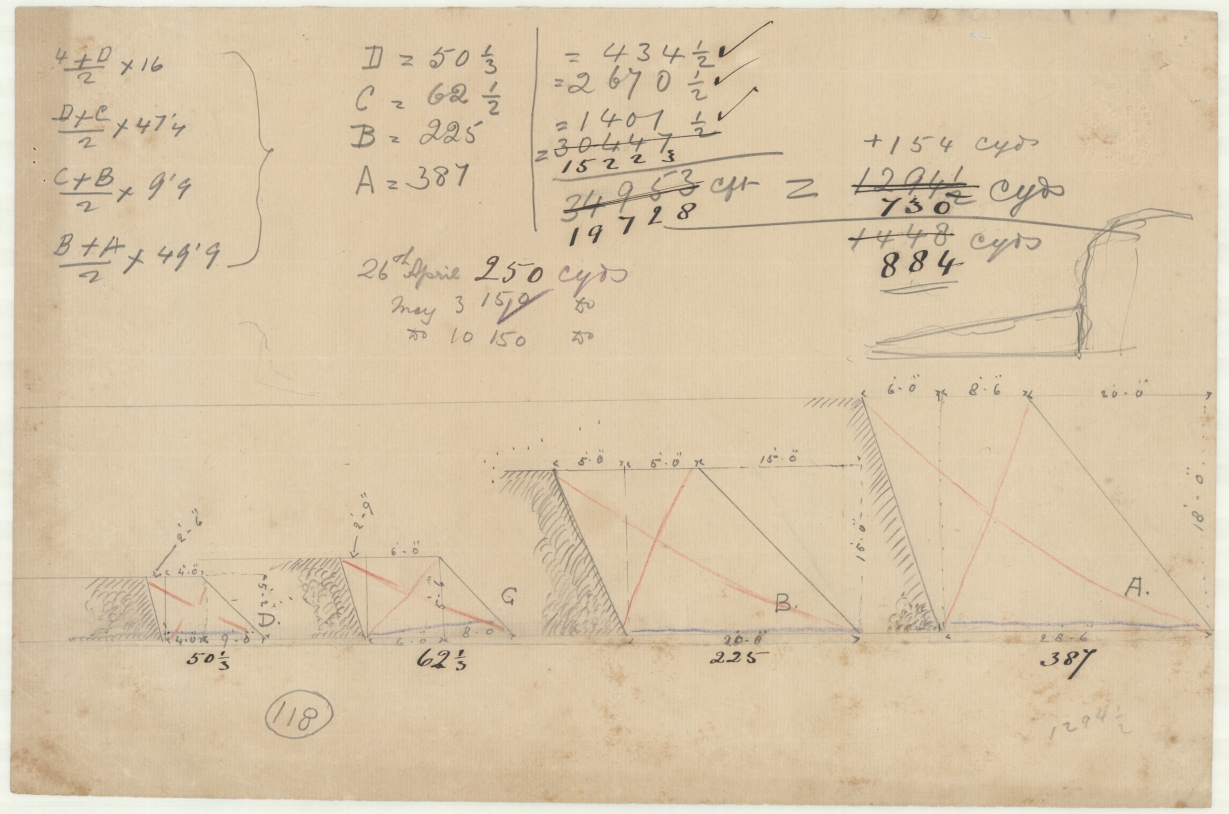 4+D/2 × 16
D+C/2 × 47'4
C+B/2 × 9'9
B+A/2 × 49'9
D = 50 1/3
C = 62 1/2
B = 225
A = 387
= 434 1/2 ✓
= 2670 1/2 ✓
= 1401 1/2 ✓
= 30447
15223
34953 cft = 12941/2 cyds
19728
+154 cyds
730
1448 cyds
884
26th April 250 cyds
May 3 150 Do
Do 10 150 Do
6'·0" 8'·6" 20'·0"
5'·0" 5'·0" 15'·0"
2'·6"
2'·9"
6'·0"
4'·0"
15'·0"
18'·0"
5'·2"
D.
C
B.
A.
4'·0" 9'·0
6'·0" 8'·0
20'·0"
28'·6
50 1/3
62 1/3
225
387
118
1294 1/2